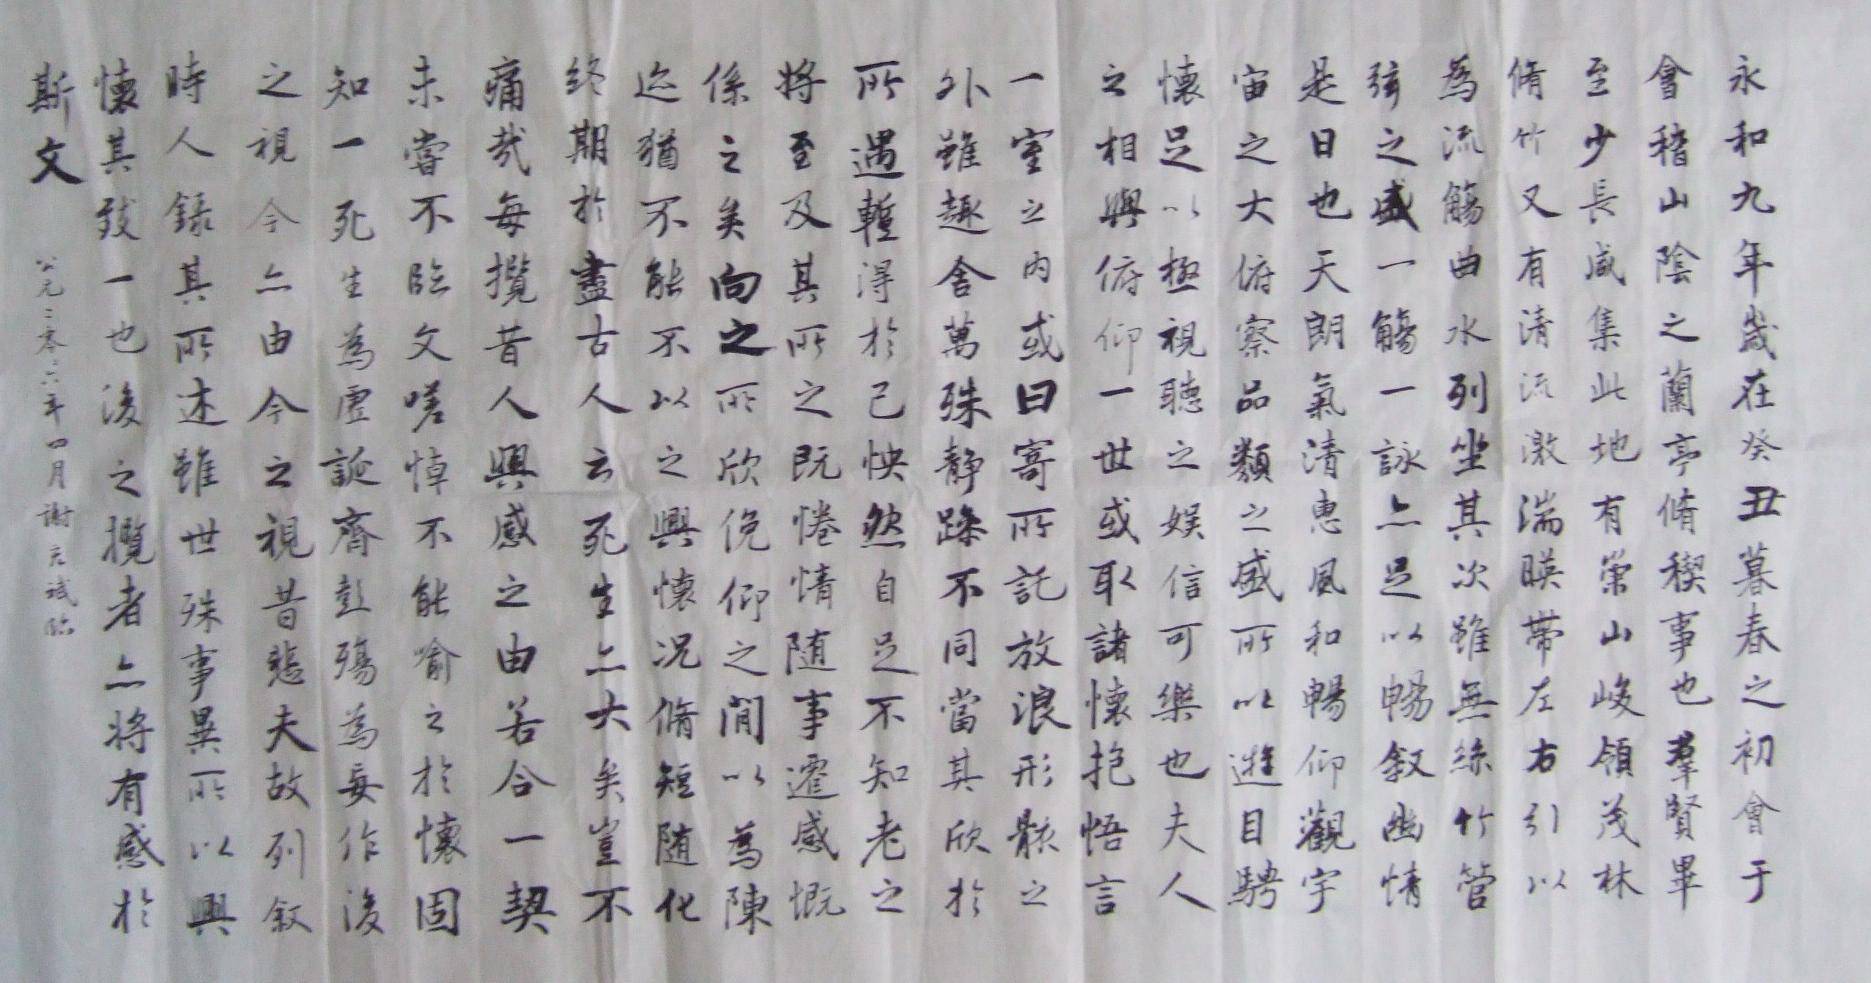 永和九年歲在癸丑暮春之初會于
會稽山陰之蘭亭脩稧事也羣賢畢
至少長咸集此地有崇山峻領茂林
脩竹又有清流激湍暎帶左右引以
為流觴曲水列坐其次雖無絲竹管
弦之盛一觴一詠亦足以暢叙幽情
是日也天朗氣清惠風和暢仰觀宇
宙之大俯察品類之盛所以遊目騁
懷足以極視聽之娛信可樂也夫人
之相與俯仰一世或取諸懷抱悟言
一室之內或曰寄所託放浪形骸之
外雖趣舍萬殊静躁不同當其欣於
所遇蹔得於己怏然自足不知老之
將至及其所之既惓情随事遷感慨
係之矣向之所欣俛仰之閒以為陳
迹猶不能不以之興懷況脩短随化
終期於盡古人云死生亦大矣豈不
痛哉每攬昔人興感之由若合一契
未嘗不臨文嗟悼不能喻之於懷固
知一死生為虛誕齊彭殤為妄作後
之視今亦由今之視昔悲夫故列叙
時人錄其所述雖世殊事異所以興
懷其致一也後之攬者亦將有感於
斯文
公元二零零六年四月謝斌臨